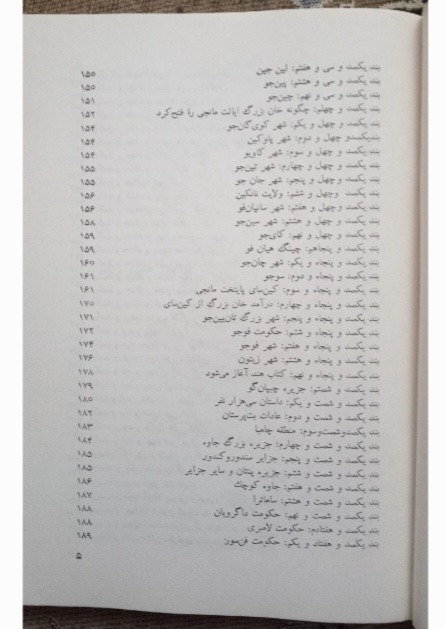 بند یکصد و سی و هفتم: لین جین ۱۵۰
بند یکصد و سی و هشتم: پین‌جو ۱۵۰
بند یکصد و سی و نهم: چین‌جو ۱۵۱
بند یکصد و چهلم: چگونه خان بزرگ ایالت مانجی را فتح‌کرد ۱۵۲
بند یکصد و چهل و یکم: شهر کوی‌گان‌جو ۱۵۴
بند یکصدو چهل و دوم: شهر پاوکین ۱۵۴
بند یکصد و چهل و سوم: شهر کاویو ۱۵۴
بند یکصد و چهل و چهارم: شهر تین‌جو ۱۵۵
بند یکصد و چهل و پنجم: شهر جان جو ۱۵۵
بند یکصد وچهل و ششم: ولایت نانکین ۱۵۶
بند یکصد و چهل و هفتم: شهر سانیان‌فو ۱۵۶
بند یکصد و چهل و هشتم: شهر سین‌جو ۱۵۸
بند یکصد و چهل و نهم: کای‌جو ۱۵۹
بند یکصد و پنجاهم: چینگ هیان فو ۱۵۹
بند یکصد و پنجاه و یکم: شهر چان‌جو ۱۶۰
بند یکصد و پنجاه و دوم: سوجو ۱۶۱
بند یکصد و پنجاه و سوم: کین‌سای پایتخت مانجی ۱۶۱
بند یکصد و پنجاه و چهارم: درآمد خان بزرگ از کین‌سای ۱۷۰
بند یکصد و پنجاه و پنجم: شهر بزرگ تان‌پین‌جو ۱۷۱
بند یکصد و پنجاه و ششم: حکومت فوجو ۱۷۲
بند یکصد و پنجاه و هفتم: شهر فوجو ۱۷۴
بند یکصد و پنجاه و هشتم: شهر زیتون ۱۷۶
بند یکصد و پنجاه و نهم: کتاب هند آغاز می‌شود ۱۷۸
بند یکصد و شصتم: جزیره چیپان‌گو ۱۷۹
بند یکصد و شصت و یکم: داستان سی‌هزار نفر ۱۸۰
بند یکصد و شصت و دوم: عادات بت‌پرستان ۱۸۲
بند یکصدوشصت‌وسوم: منطقه چامبا ۱۸۳
بند یکصد و شصت و چهارم: جزیره بزرگ جاوه ۱۸۴
بند یکصد و شصت و پنجم: جزایر سندوروکندور ۱۸۵
بند یکصد و شصت و ششم: جزیره پنتان و سایر جزایر ۱۸۵
بند یکصد و شصت و هفتم: جاوه کوچک ۱۸۶
بند یکصد و شصت و هشتم: ساماترا ۱۸۷
بند یکصد و شصت و نهم: حکومت داگرویان ۱۸۸
بند یکصد و هفتادم: حکومت لامبری ۱۸۸
بند یکصد و هفتاد و یکم: حکومت فن‌سور ۱۸۹
۵